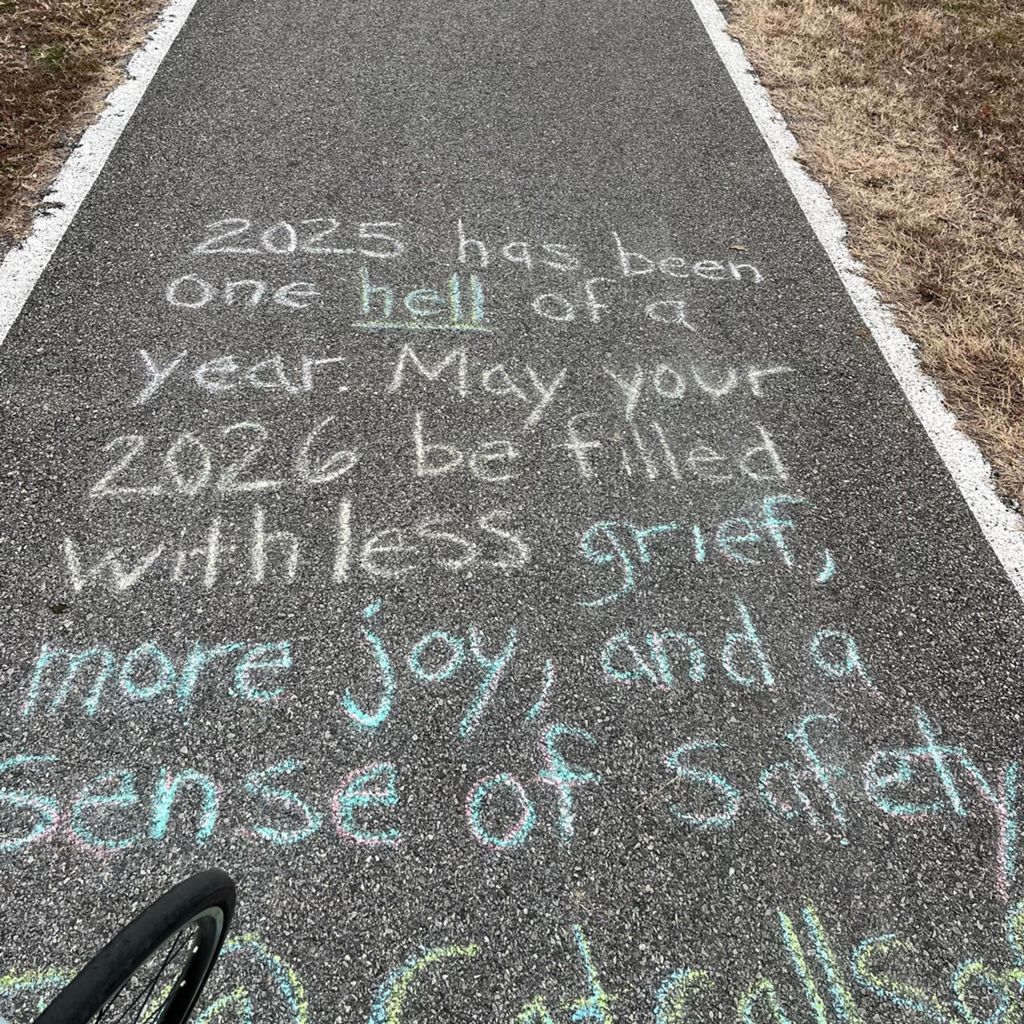 2025 has been
one hell of a
year. May your
2026 be filled
with less grief,
more joy, and a
sense of safety